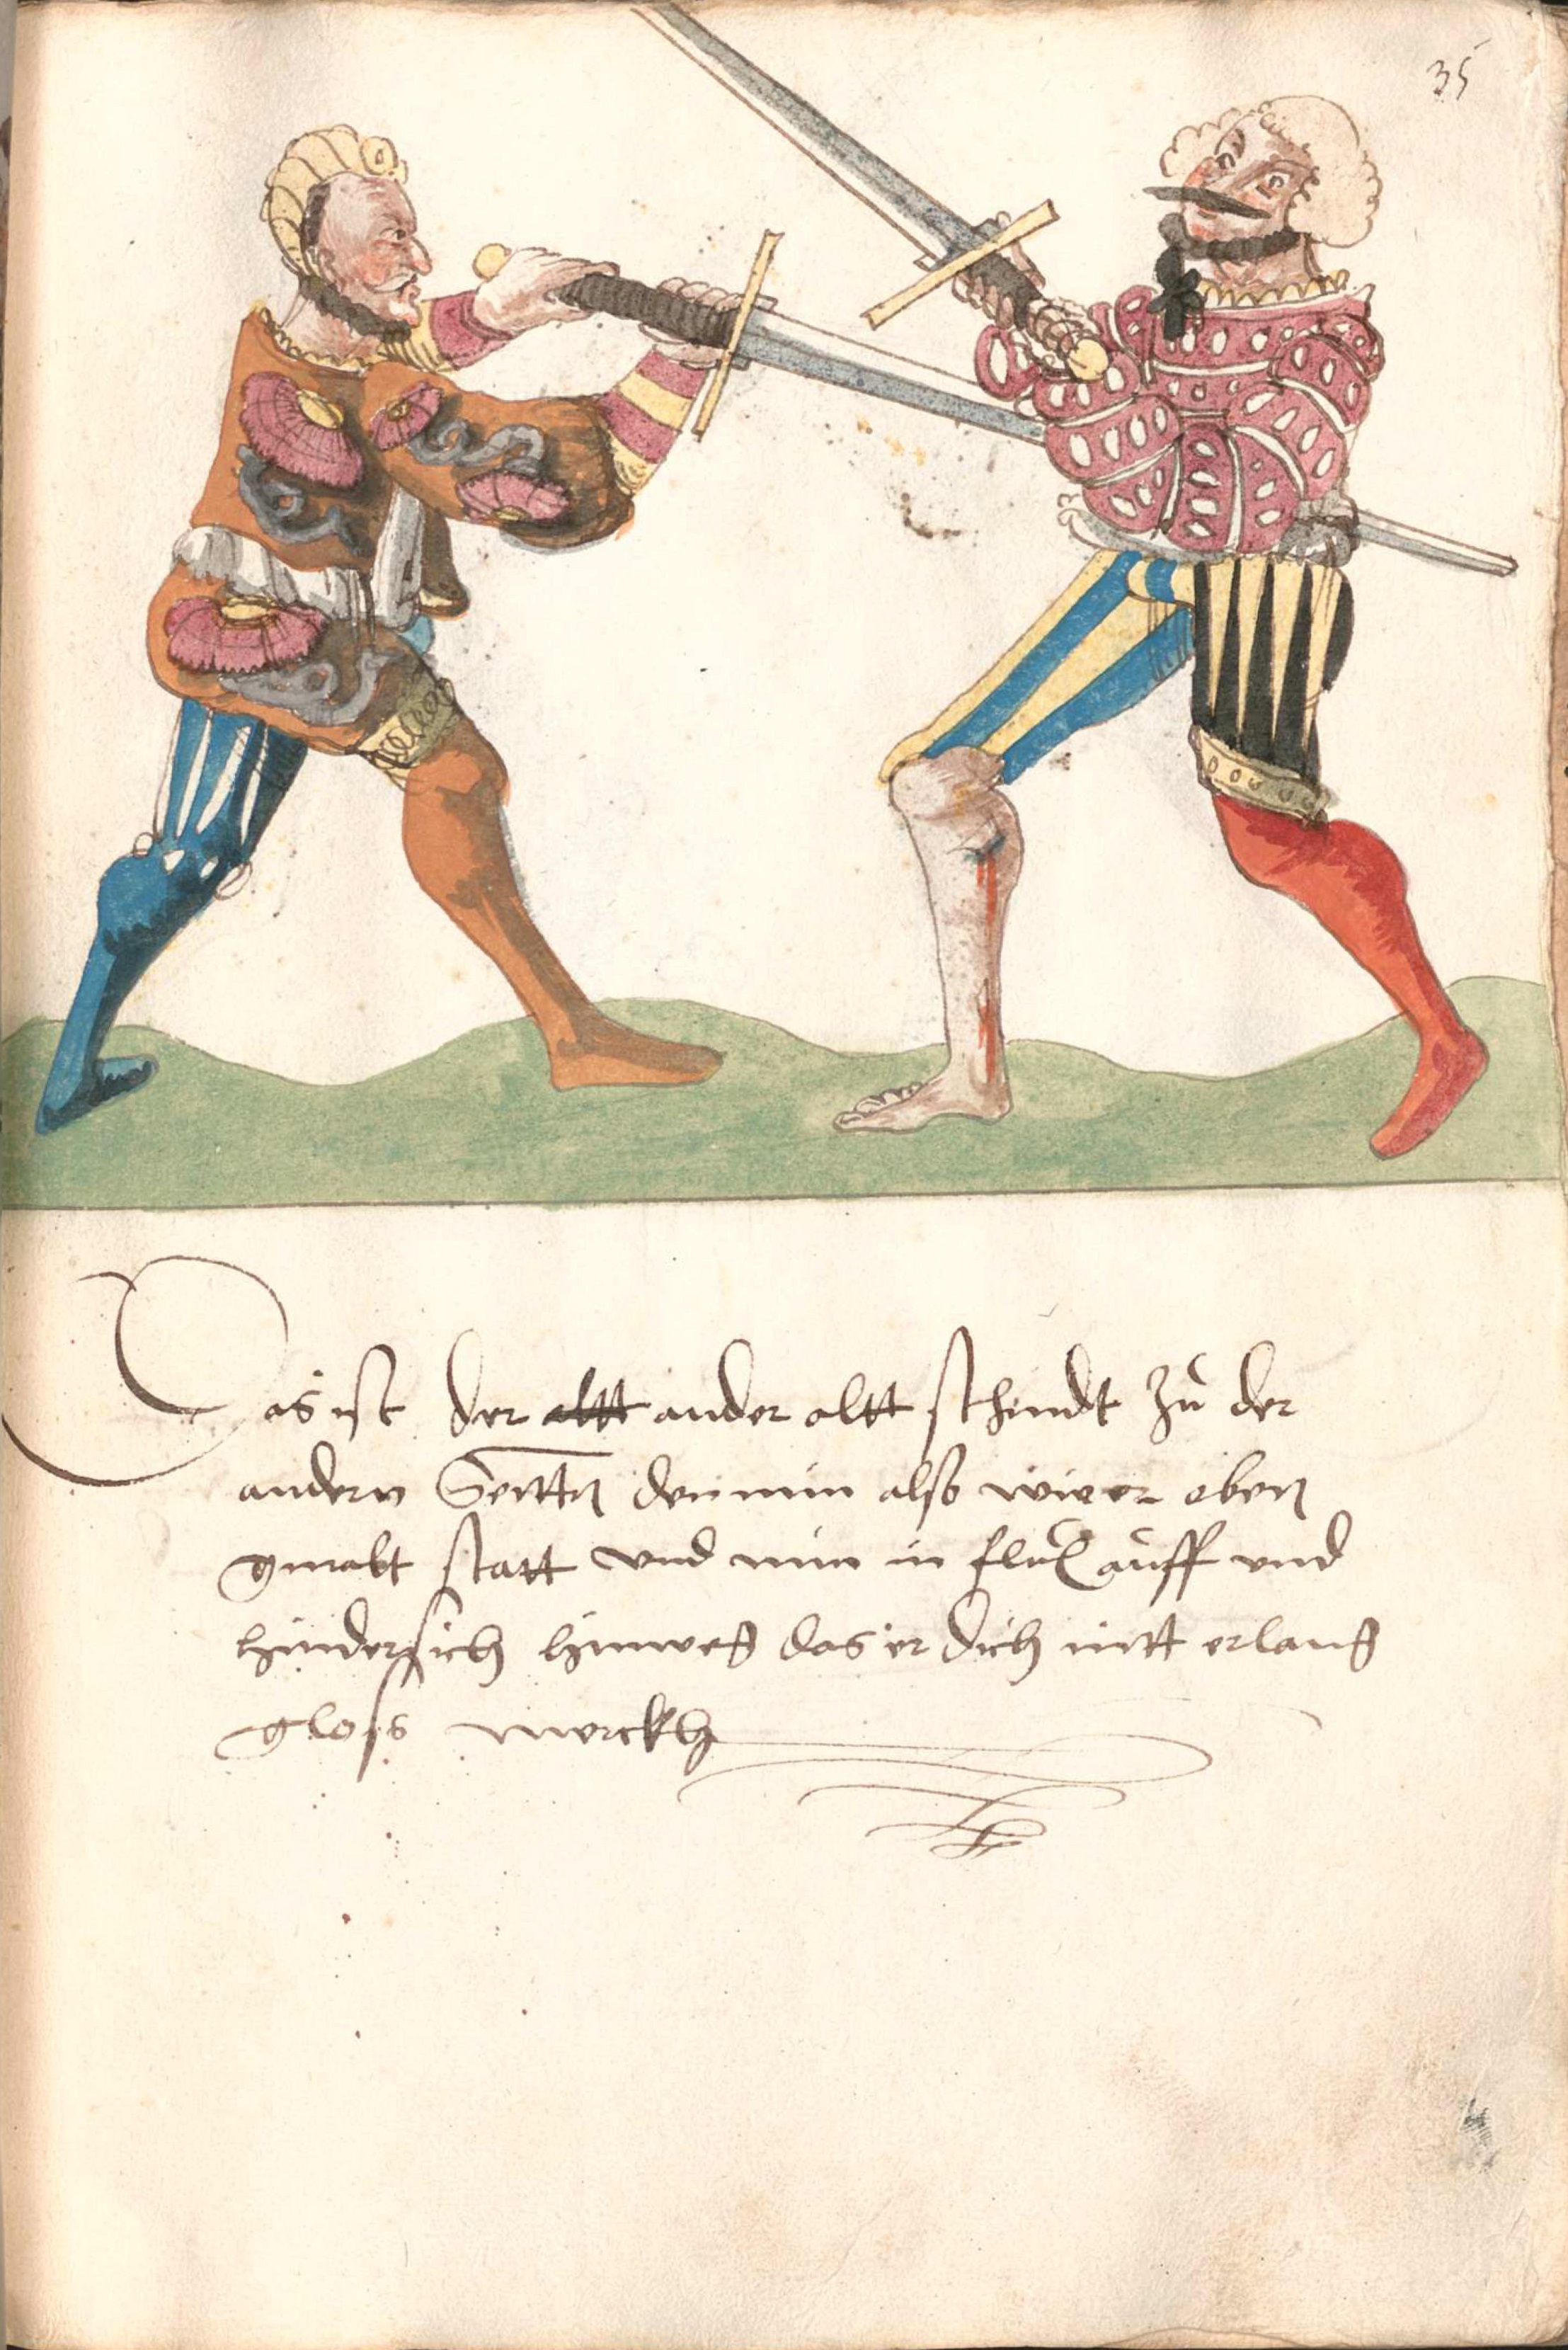 35
Das ist der altt ander altt schindt zů der
andern Seittn den nim also wie er oben
gmalt statt vnd nim in flux auff vnd
hindersich hinweg das er dich nitt erlang
gloss merckh